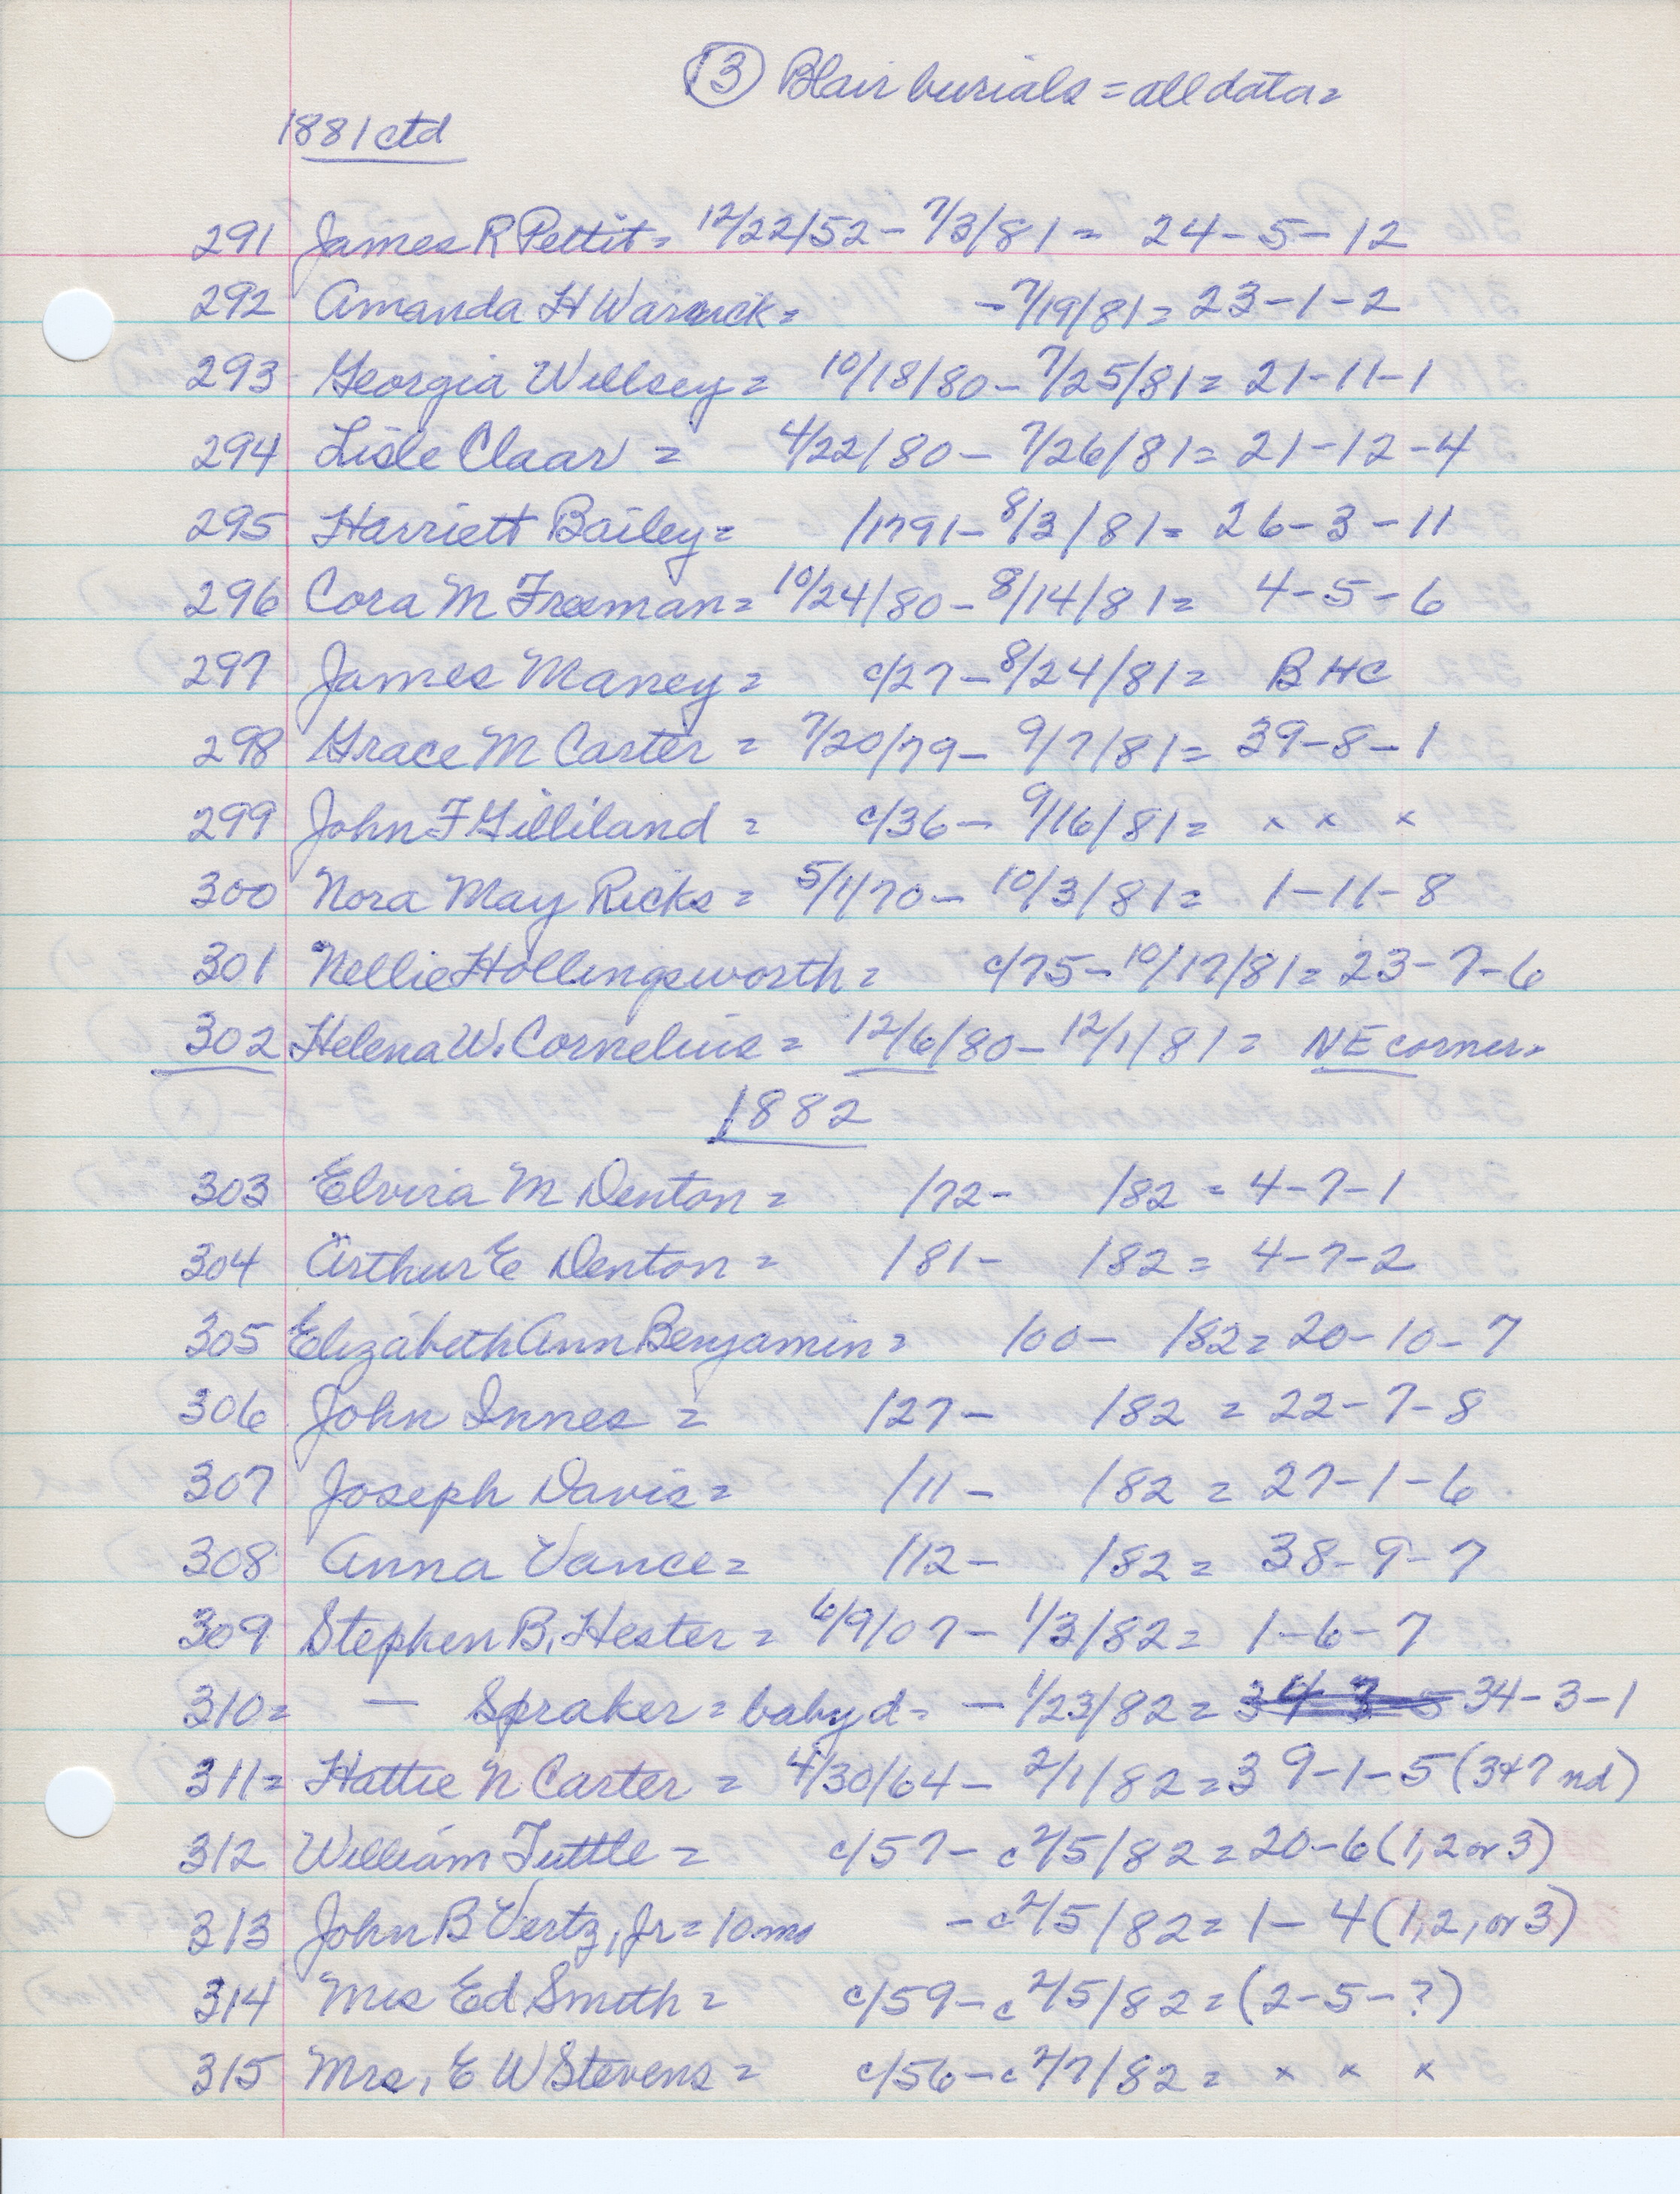 (13) Blair burials = all data =
1881 ctd
291 James R Pettit = 12/22/52 - 7/3/81 = 24-5-12
292 Amanda H Warnick = - 7/19/81 = 23-1-2
293 Georgia Willsey = 10/18/80 - 7/25/81 = 21-11-1
294 Lisle Claar = 4/22/80 - 7/26/81 = 21-12-4
295 Harriett Bailey = /1791 - 8/3/81 = 26-3-11
296 Cora M Freeman = 10/24/80 - 8/14/81 = 4-5-6
297 James Maney = c/27 - 8/24/81 = BHC
298 Grace M Carter = 7/20/79 - 9/7/81 = 39-8-1
299 John F Gilliland = c/36 - 9/16/81 = x x x
300 Nora May Ricks = 5/1/70 - 10/3/81 = 1-11-8
301 Nellie Hollingsworth = c/75 - 10/17/81 = 23-7-6
302 Helena W. Cornelius = 12/6/80 - 12/1/81 = NE corner =
1882
303 Elvira M Denton = /72 - /82 = 4-7-1
304 Arthur E Denton = /81 - /82 = 4-7-2
305 Elizabeth Ann Benjamin = /00 - /82 = 20-10-7
306 John Innes = /27 - /82 = 22-7-8
307 Joseph Davis = /11 - /82 = 27-1-6
308 Anna Vance = /12 - /82 = 38-9-7
309 Stephen B. Hester = 6/9/07 - 1/3/82 = 1-6-7
310 = — Spraker = baby d = - 1/23/82 = 34-3-1
311 = Hattie N Carter = 4/30/64 - 2/1/82 = 39-1-5 (3+7 nd)
312 William Tuttle = c/57 - c 2/5/82 = 20-6 (1,2 or 3)
313 John B Vertz, Jr = 10 mo - c 2/5/82 = 1-4 (1,2, or 3)
314 Mrs Ed Smith = c/59 - c 2/5/82 = (2-5-?)
315 Mrs. E W Stevens = c/56 - c 2/7/82 = x x x